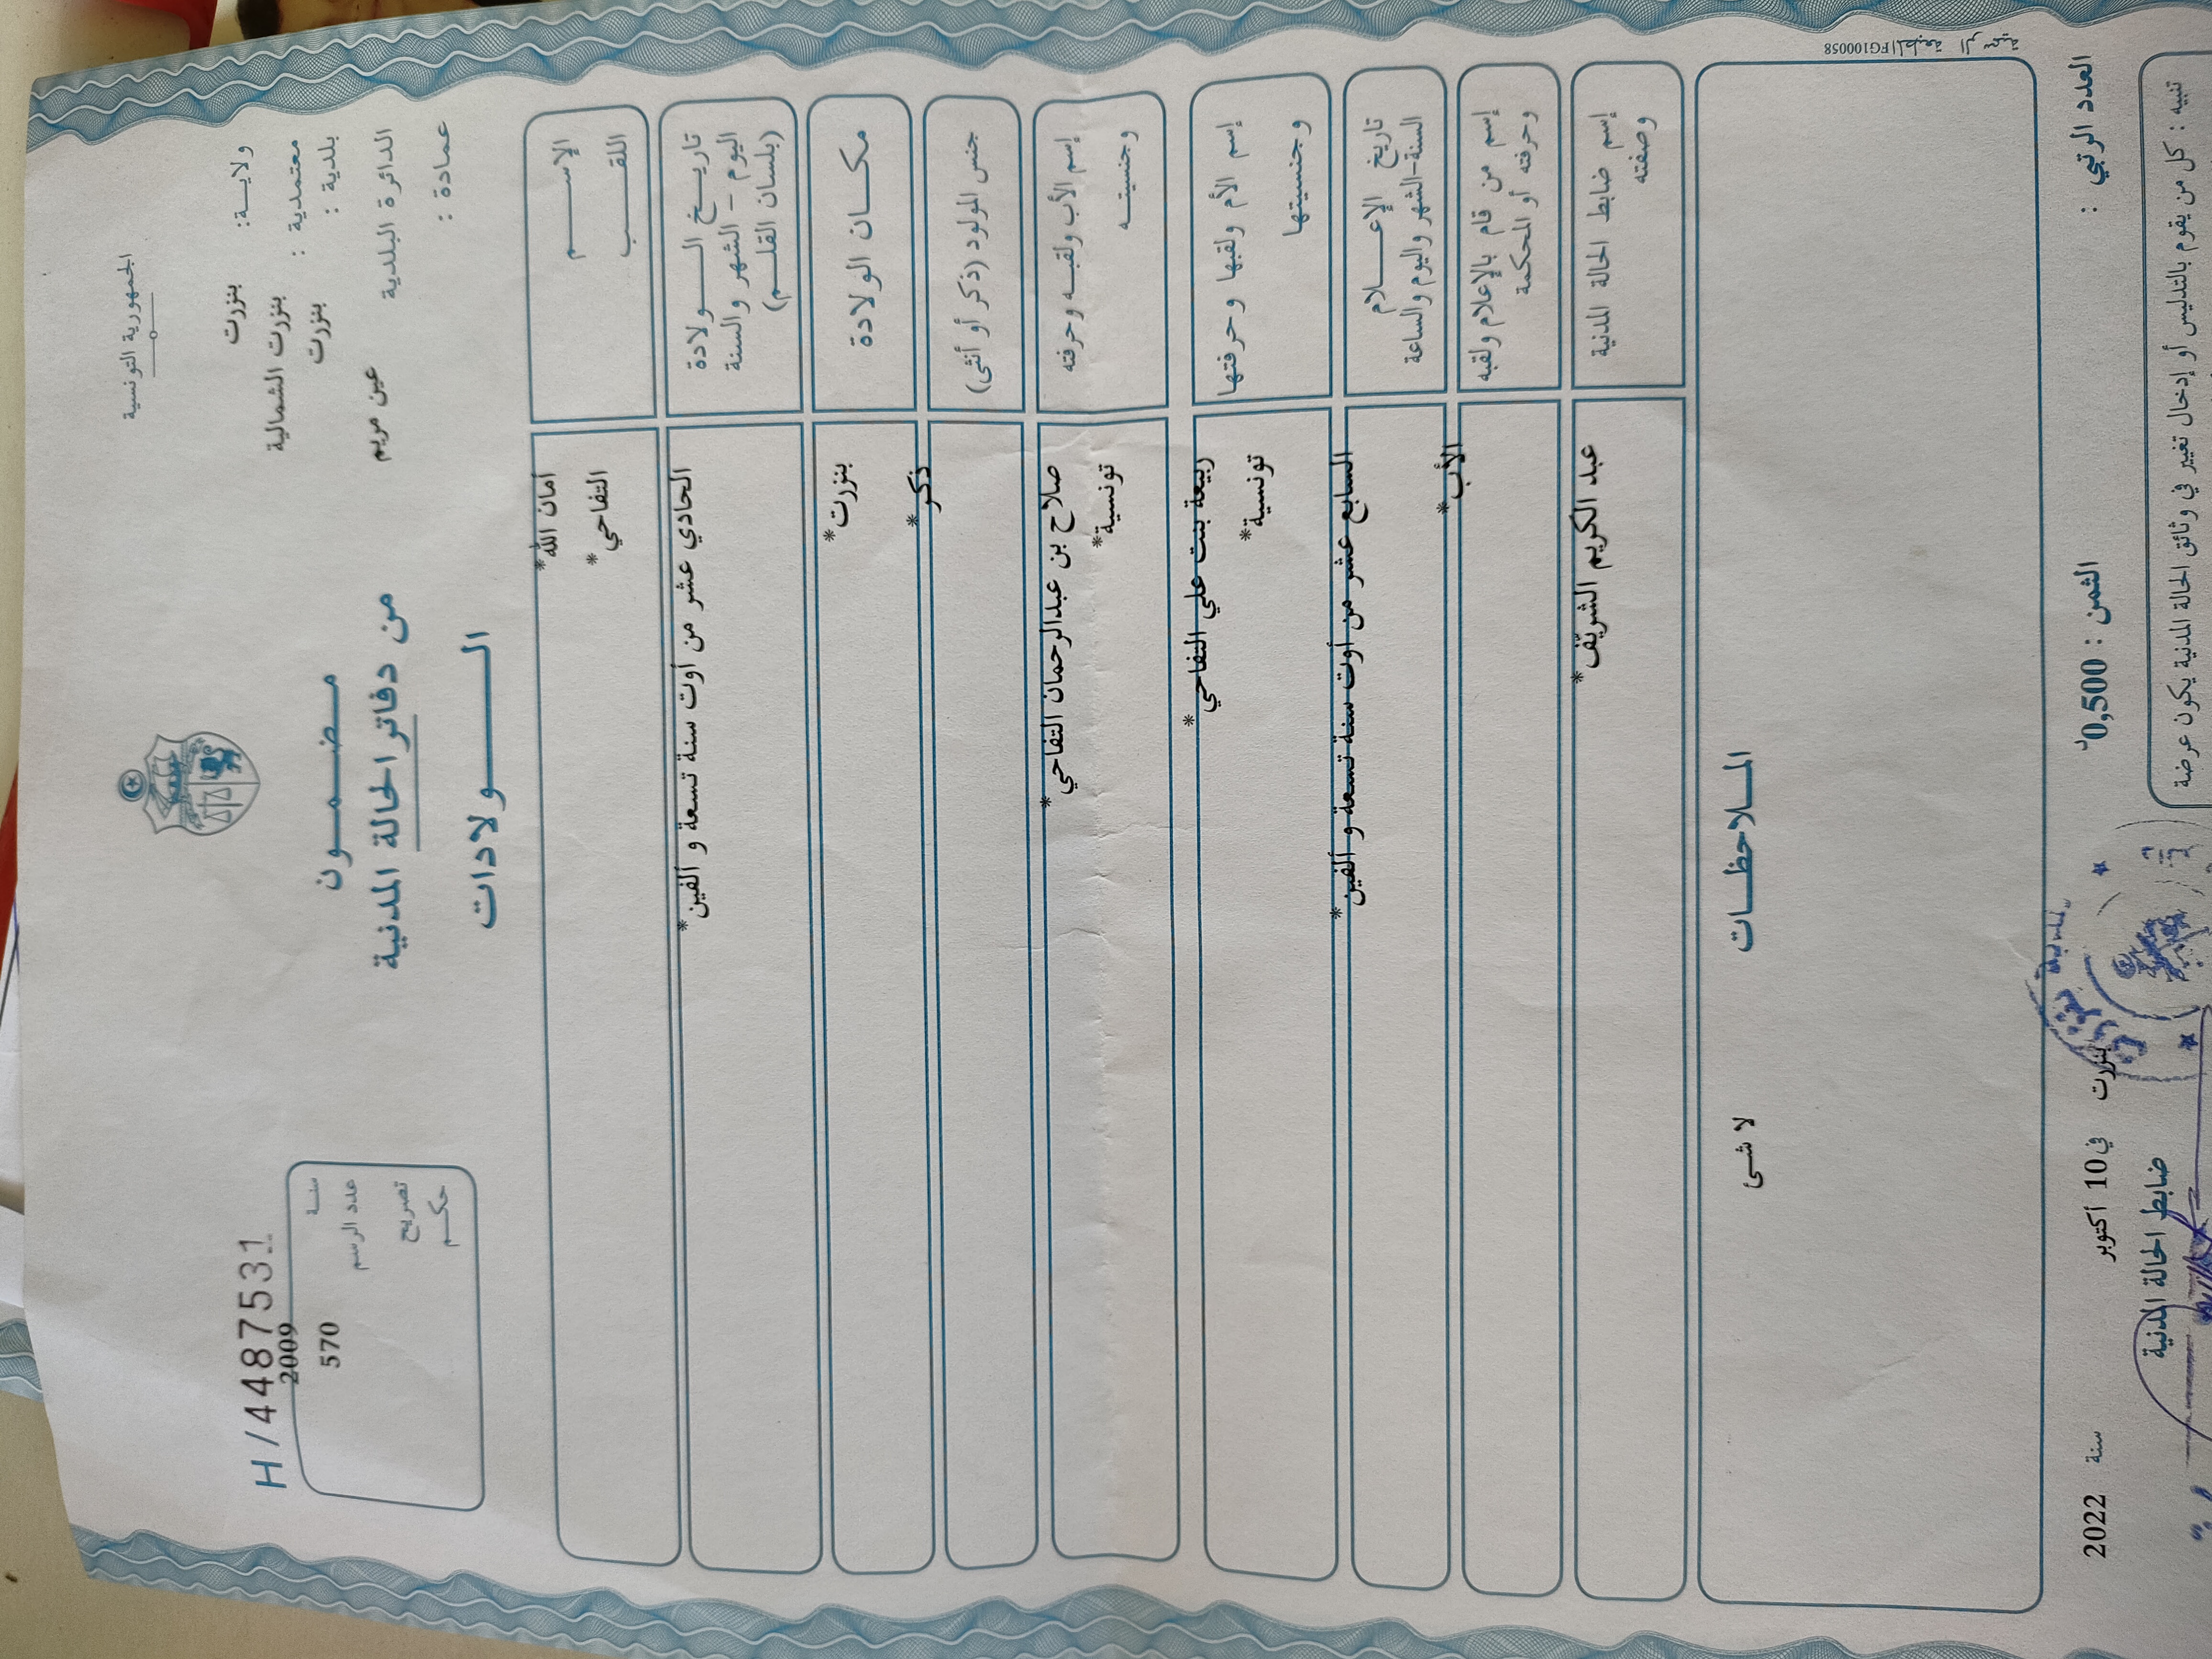 الجمهورية التونسية
ولايـــة: بنزرت
معتمدية : بنزرت الشمالية
بلدية : بنزرت
الدائرة البلدية عين مريم
عمادة :
H/4487531
سنـة 2009
عدد الرسم 570
تصريح
حكـم
مـضـمـون
من دفاتر الحالة المدنية
الـــولادات
الإســـم أمان الله*
اللقـــب التفاحي*
تاريـــخ الـــولادة
اليوم - الشهر والسنة
(بلسان القلـــم)
الحادي عشر من أوت سنة تسعة و ألفين*
مكـــان الولادة بنزرت*
جنس المولود (ذكر أو أنثى) ذكر*
إسم الأب ولقبـــه وحرفته صلاح بن عبدالرحمان التفاحي*
وجنسيتـــه تونسية*
إسم الأم ولقبها وحرفتها ربيعة بنت علي التفاحي*
وجنسيتها تونسية*
تاريخ الإعـــلام
السنة-الشهر واليوم والساعة
السابع عشر من أوت سنة تسعة و ألفين*
إسم من قام بالإعلام ولقبه
وحرفته أو المحكمة
الأب*
إسم ضابط الحالة المدنية
وصفته
عبد الكريم الشريّف*
المـــلاحظـــات
لا شىء
المطبعة الرسمية FG100058
العدد الرتبي :
الثمن : 0,500د
بنزرت في 10 أكتوبر سنة 2022
ضابط الحالة المدنية
تنبيه : كل من يقوم بالتدليس أو إدخال تغيير في وثائق الحالة المدنية يكون عرضة